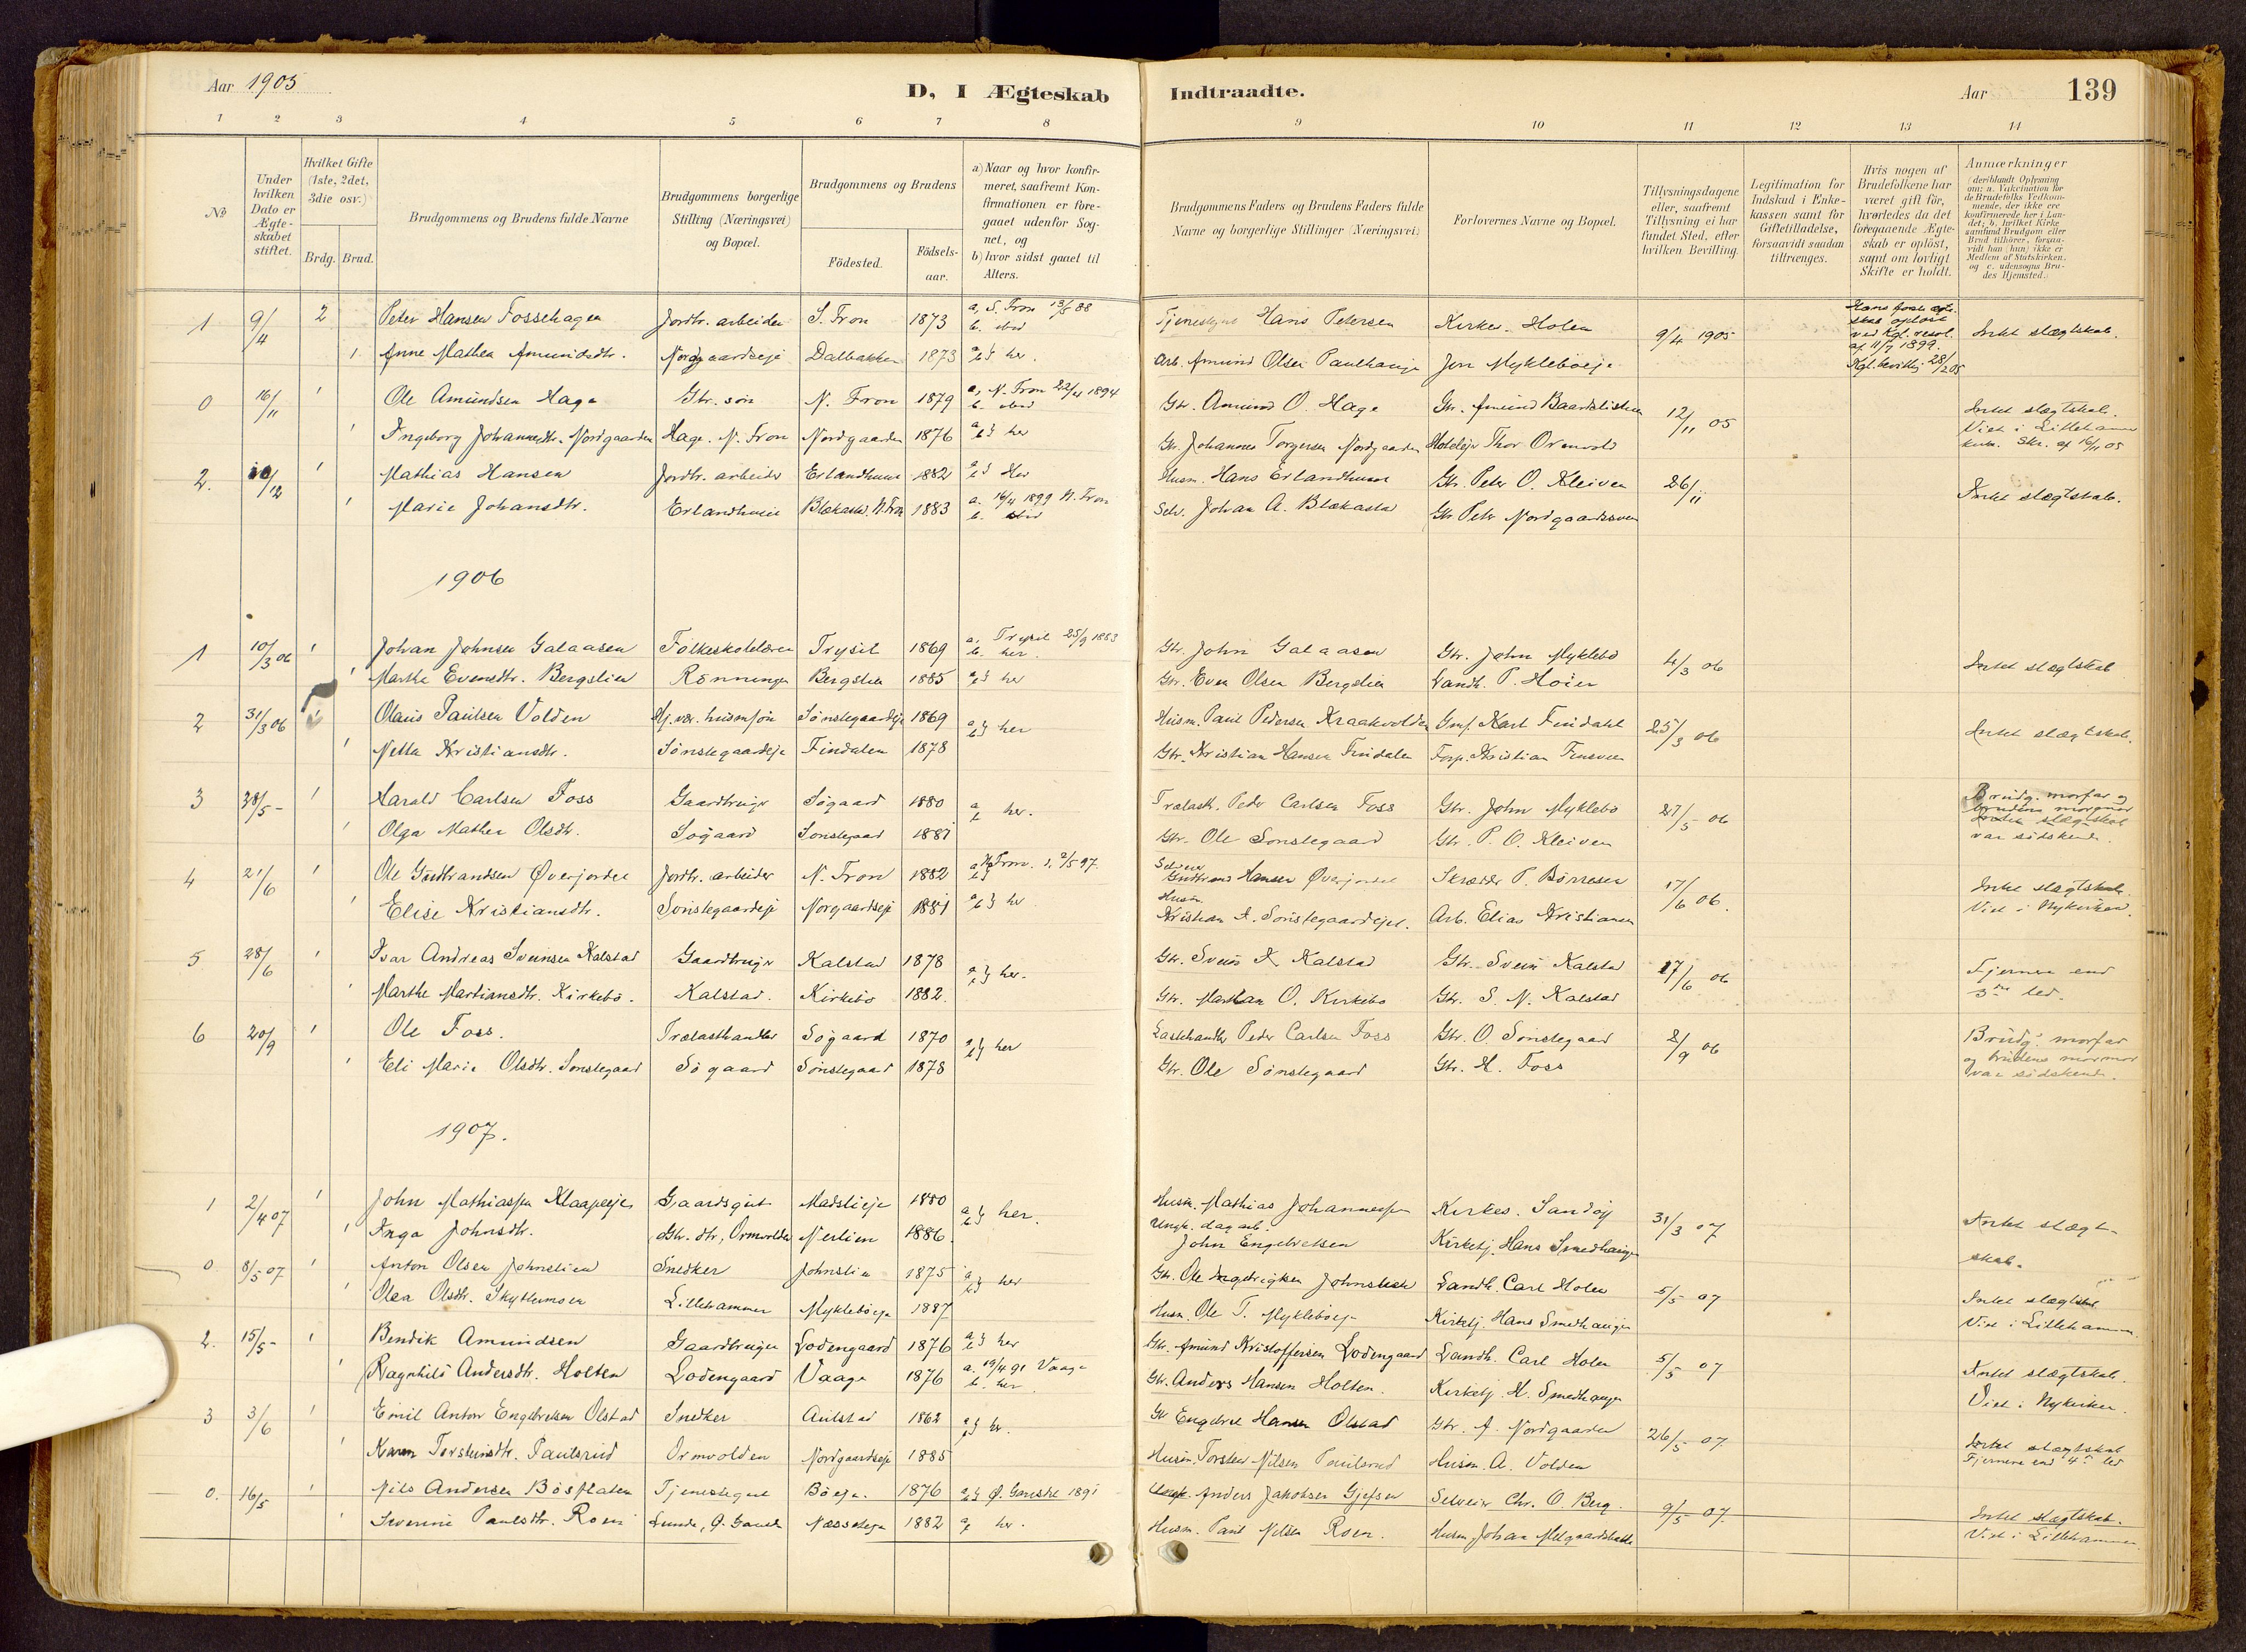 Aar 1905 D, I Ægteskab Indtraadte. Aar 139
1 2 3 4 5 6 7 8 9 10 11 12 13 14
No
Under hvilken Dato er Ægteskabet stiftet.
Hvilket Gifte (1ste, 2det, 3die osv.)
Brdg. Brud.
Brudgommens og Brudens fulde Navne
Brudgommens borgerlige Stilling (Næringsvei) og Bopæl.
Brudgommens og Brudens
Födested. Födsels-aar.
a) Naar og hvor konfirmeret, saafremt Konfirmationen er foregaaet udenfor Sognet, og
b) hvor sidst gaaet til Alters.
Brudgommens Faders og Brudens Faders fulde Navne og borgerlige Stillinger (Næringsvei)
Forlovernes Navne og Bopæl.
Tillysningsdagene eller, saafremt Tillysning ei har fundet Sted, efter hvilken Bevilling.
Legitimation for Indskud i Enkekassen samt for Giftetilladelse, forsaavidt saadan tiltrænges.
Hvis nogen af Brudefolkene har været gift før, hvorledes da det foregaaende Ægteskab er opløst, samt om lovligt Skifte er holdt.
Anmærkninger (deriblandt Oplysning om: a. Vakcination for de Brudefolks Vedkommende, der ikke ere konfirmerede her i Landet; b. hvilket Kirkesamfund Brudgom eller Brud tilhører, forsaavidt han (hun) ikke er Medlem af Statskirken, og c. udensogns Brudes Hjemsted.)
1 9/4 2 Peter Hansen Fossehagen Jordbr. arbeider S. Fron 1873 a, S. Fron 13/5 88 b. sted Hans Petersen Kirkes. Holen 9/4 1905 Hans første ægteskab opløst ved Kgl. resol. af 11/7 1899. Kgl. bevillg 28/2 05 Intet slægtskab.
1 Anne Mathea Amundsdtr. Nordgaardseje Dalbakken 1873 a b} her. Arb. Amund Olsen Paulhauge Jon Mykleböeje
0 16/11 1 Ole Amundsen Hage Gbr. søn N. Fron 1879 a, N. Fron 22/4 1894 b. sted Gbr. Amund O. Hage Gbr. Amund Baardslistuen 12/11 05 Intet slægtskab.
1 Ingeborg Johannesdtr. Nordgaarden Hage. N. Fron Nordgaarden 1876 a b} her Gbr. Johannes Torgersen Nordgaarden Hotelejer Thor Ormvold Viet i Lillehammer
2. 10/12 1 Mathias Hansen Jordbr. arbeider Erlandhuse 1882 a b} Her Husm. Hans Erlandhuse Gbr. Peter O. Kleiven 26/11 Intet slægtskab.
1 Marie Johansdtr. Erlandhuse Blekastad. N. Fron 1883 a. 16/4 1899 N. Fron b. sted Selv. Johan A. Blekastad Gbr Peter Nordgaardssven
1906
1 10/3 06 1 Johan Johnsen Galaasen Folkeskolelærer Trysil 1869 a, Trysil 25/9 1883 b. her. Gbr. John Galaasen Gbr. John Myklebö 4/3 06 Intet slægtskab
1 Marthe Evensdtr. Bergslien Rønningen Bergslien 1885 a b} her Gbr. Even Olsen Bergslien Landh. P. Hoier
2 31/3 06 1 Olaus Paulsen Volden Hj.vær. husmsøn Sønstegaardseje 1869 a b} her Husm. Paul Pedersen Kraakvolden Karl Findahl 25/3 06 Intet slægtskab.
1 Netta Kristiansdtr. Sönstegaardseje Findalen 1878 Gbr. Kristian Hansen Findalen Forp. Kristian
3 28/5 - 1 Harald Carlsen Foss Gaardbruger Sögaard 1880 a b her. Trælasth. Peder Carlsen Foss Gbr. John Myklebö 27/5 06 Brudg. morfar og brudens mormor
1 Olga Mathea Olsdtr. Sögaard Sönstegaard 1881 Gbr. Ole Sonstegaard Gbr. P. O. Kleiven var södskende.
4 21/6 1 Ole Gudbrandsen Øverjordet Jordbr. arbeider N. Fron 1882 N. Fron 2/5 97. Gudbrand Hansen Øverjordet Skræder P. Börresen 17/6 06. Intet slægtskab.
1 Elise Kristiansdtr. Sönstegaardseje Norgaardseje 1881 a b} her Husm. Kristian A. Sonstegaardseje. Arb. Elias Kristiansen Viet i Nykirken.
5 28/6 1 Ivar Andreas Sveinsen Kalstad Gaardbruger Kalstad 1878 a b} her. Gbr. Svein I. Kalstad Gbr. Svein Kalstad 17/6 06 Fjernere end
1 Marthe Martiansdtr. Kirkebö. Kalstad. Kirkebö 1882. Gbr. Martian O. Kirkebö Gbr. S. N. Kalstad 3die led.
6 20/9 1 Ole Foss. Trælasthandler Sögaard 1870 a b} her Lasthandler Peder Carlsen Foss Gbr. O. Sönstegaard 2/9 06 Brudg. morfar
1 Eli Marie Olsdtr. Sonstegaard Sögaard Sönstegaard 1878 Gbr. Ole Sönstegaard Gbr. H. Foss og brudens mormor var södskende.
1907.
1 2/4 07 1 John Mathiassen Klaapeje Gaardsgut Madslieje 1880 a b} her. Husm. Mathias Johannessen Kirkes. Sandøy 31/3 07 Intet slægt-
1 Inga Johnsdtr. Gbr. dtr, Ormvolden Nerlien 1886. Ungk. dagarb. John Engebretsen Kirketj. Hans Smedhaugen skab.
0 8/5 07 1 Anton Olsen Johnslien Snedker Johnslien 1875 a b} her Gbr. Ole Ingebrigtsen Johnslien Landh. Carl Holen 5/5 07 Intet slægtskab
1 Olea Olsdtr. Skyttemoen Lillehammer Mykleböeje 1887 Husm. Ole T. Mykleböeje Kirketj. Hans Smedhaugen Viet i Lillehammer.
2. 15/5 - 1 Bendik Amundsen Gaardbruger Lodengaard 1876 a b} her Gbr. Amund Kristoffersen Lodengaard Landh. Carl Holen 5/5 07 Intet slægtskab.
1 Ragnhild Andersdtr. Holten Lodengaard Vaage 1876 a. 19/4 91 Vaage b. her Gbr. Anders Hansen Holten. Kirketj. H. Smedhaugen Viet i Nykirken.
3 3/6 1 Emil Anton Engebretsen Olstad Snedker Aulstad 1862 a b} her. Gbr Engebret Hansen Olstad Gbr. A. Nordgaarden 26/5 07. Intet slægtskab
1 Karen Torsteinsdtr. Paulsrud Ormvolden Nordgaardseje 1885 Husm. Torsten Nilsen Paulsrud Husm. A. Volden Fjernere end 4de led
0. 16/5 1 Nils Andersen Bösflaten Tjenestegut Böeje. 1876 a b} Ø. Gausdal 1891 Ungk. Anders Jakobsen Gjefsen Selveier Chr. O. Berg. 9/5 07. Intet slægtskab.
1 Severine Paulsdtr. Roen Lunde, Ø. Gausd. Næsseteje 1882 a b her. Husm. Paul Nilsen Roen. Husm. Johan Melgaardsbakke Viet i Lillehammer